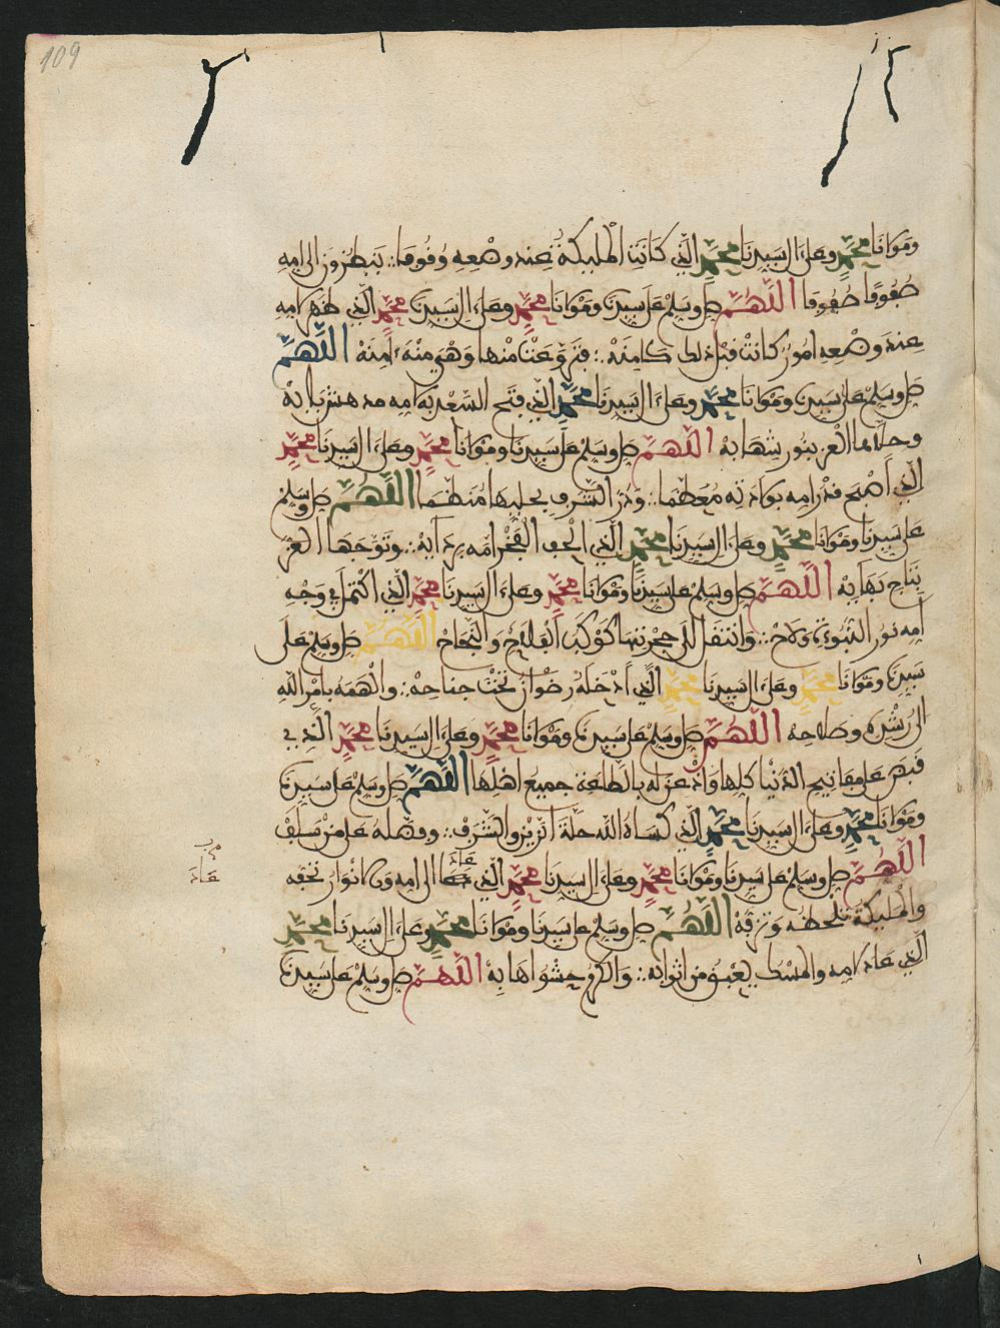 109
ومولانا محمد وعلى ال سيدنا محمد الذي كانت الملئكة عند وضعه وفوفا ∴ ينظرون الى امه
صفوفا صفوفا اللهم صل وسلم على سيدنا ومولانا محمد وعلى ال سيدنا محمد الذي ظهر لامه
عند وضعه امور كانت قبل ذلك كامنة ∴ منها وهي منه ءامنة اللهم
صل وسلم على سيدنا ومولانا محمد وعلى ال سيدنا محمد الذي فتح السعد لامه
وحلاها العز بنور اللهم صل وسلم على سيدنا ومولانا محمد وعلى ال سيدنا محمد
الذي اصبح قدر امه بولادته معظما ∴ ودر الشرف بجليها منظما اللهم صل وسلم
على سيدنا ومولانا محمد وعلى ال سيدنا محمد الذي الحف الفخر امه بردايه ∴ وتوجها العز
بتاج بهايه اللهم صل وسلم على سيدنا ومولانا محمد وعلى ال سيدنا محمد الذي اكتمل في وجه
امه نور النبوءة ولاح ∴ وانتقل الى حجرتها كوكب الفلاح والنجاح اللهم صل وسلم على
سيدنا ومولانا محمد وعلى ال سيدنا محمد الذي ادخله رضوان تحت جناحه ∴ والهمه بامر الله
الى رشده وصلاحه اللهم صل وسلم على سيدنا ومولانا محمد وعلى ال سيدنا محمد الذي
قبض على مفاتيح الدنيا كلها واذعن له بالطاعة جميع اهلها اللهم صل وسلم على سيدنا
ومولانا محمد وعلى ال سيدنا محمد الذي كساه الله حلة والشرف ∴ وفضله على من سلف
اللهم صل وسلم على سيدنا ومولانا محمد وعلى ال سيدنا محمد الذي عاد الى امه والانوار تحفه
والملئكة تلحظه وتزفه اللهم صل وسلم على سيدنا ومولانا محمد وعلى ال سيدنا محمد
الذي عاد لامه والمسك يعبق من اثوابه ∴ والكرم حشو اهابه اللهم صل وسلم على سيدنا
عاد